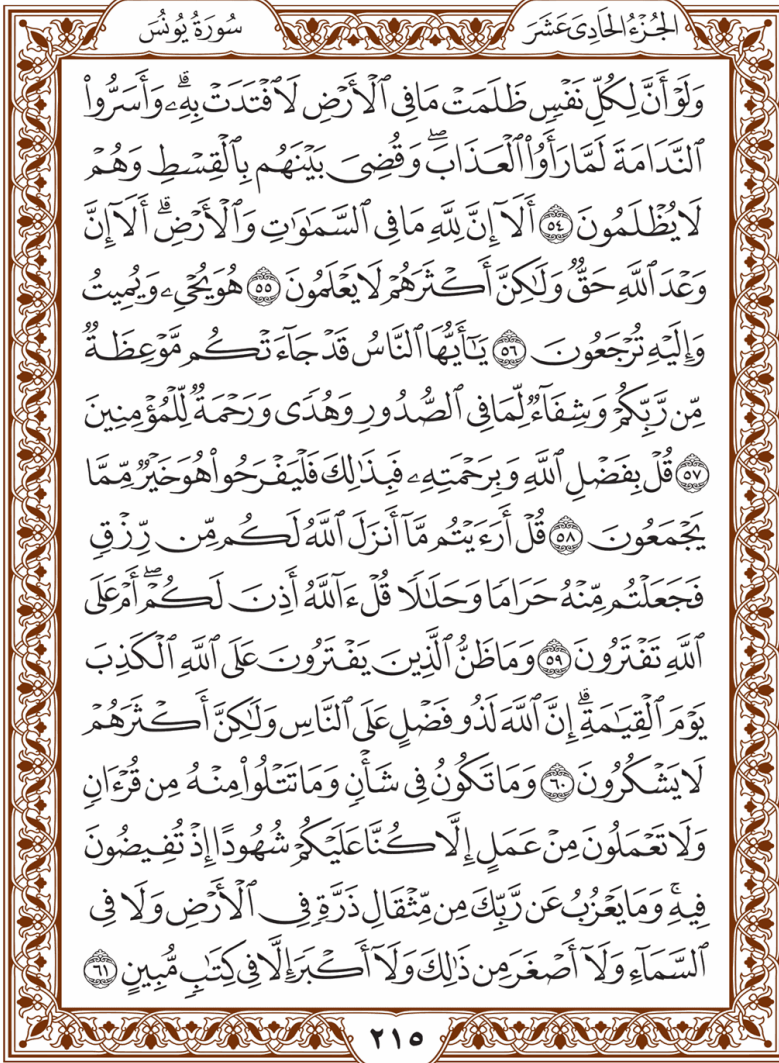 الجُزْءُ الحَادِي عَشَرَ
سُورَةُ يُونُسَ
وَلَوۡ أَنَّ لِكُلِّ نَفۡسٖ ظَلَمَتۡ مَا فِي ٱلۡأَرۡضِ لَٱفۡتَدَتۡ بِهِۦۗ وَأَسَرُّواْ
ٱلنَّدَامَةَ لَمَّا رَأَوُاْ ٱلۡعَذَابَۖ وَقُضِيَ بَيۡنَهُم بِٱلۡقِسۡطِ وَهُمۡ
لَا يُظۡلَمُونَ ٥٤ أَلَآ إِنَّ لِلَّهِ مَا فِي ٱلسَّمَٰوَٰتِ وَٱلۡأَرۡضِۗ أَلَآ إِنَّ
وَعۡدَ ٱللَّهِ حَقّٞ وَلَٰكِنَّ أَكۡثَرَهُمۡ لَا يَعۡلَمُونَ ٥٥ هُوَ يُحۡيِۦ وَيُمِيتُ
وَإِلَيۡهِ تُرۡجَعُونَ ٥٦ يَٰٓأَيُّهَا ٱلنَّاسُ قَدۡ جَآءَتۡكُم مَّوۡعِظَةٞ
مِّن رَّبِّكُمۡ وَشِفَآءٞ لِّمَا فِي ٱلصُّدُورِ وَهُدٗى وَرَحۡمَةٞ لِّلۡمُؤۡمِنِينَ
٥٧ قُلۡ بِفَضۡلِ ٱللَّهِ وَبِرَحۡمَتِهِۦ فَبِذَٰلِكَ فَلۡيَفۡرَحُواْ هُوَ خَيۡرٞ مِّمَّا
يَجۡمَعُونَ ٥٨ قُلۡ أَرَءَيۡتُم مَّآ أَنزَلَ ٱللَّهُ لَكُم مِّن رِّزۡقٖ
فَجَعَلۡتُم مِّنۡهُ حَرَامٗا وَحَلَٰلٗا قُلۡ ءَآللَّهُ أَذِنَ لَكُمۡۖ أَمۡ عَلَى
ٱللَّهِ تَفۡتَرُونَ ٥٩ وَمَا ظَنُّ ٱلَّذِينَ يَفۡتَرُونَ عَلَى ٱللَّهِ ٱلۡكَذِبَ
يَوۡمَ ٱلۡقِيَٰمَةِۗ إِنَّ ٱللَّهَ لَذُو فَضۡلٍ عَلَى ٱلنَّاسِ وَلَٰكِنَّ أَكۡثَرَهُمۡ
لَا يَشۡكُرُونَ ٦٠ وَمَا تَكُونُ فِي شَأۡنٖ وَمَا تَتۡلُواْ مِنۡهُ مِن قُرۡءَانٖ
وَلَا تَعۡمَلُونَ مِنۡ عَمَلٍ إِلَّا كُنَّا عَلَيۡكُمۡ شُهُودًا إِذۡ تُفِيضُونَ
فِيهِۚ وَمَا يَعۡزُبُ عَن رَّبِّكَ مِن مِّثۡقَالِ ذَرَّةٖ فِي ٱلۡأَرۡضِ وَلَا فِي
ٱلسَّمَآءِ وَلَآ أَصۡغَرَ مِن ذَٰلِكَ وَلَآ أَكۡبَرَ إِلَّا فِي كِتَٰبٖ مُّبِينٍ ٦١
٢١٥